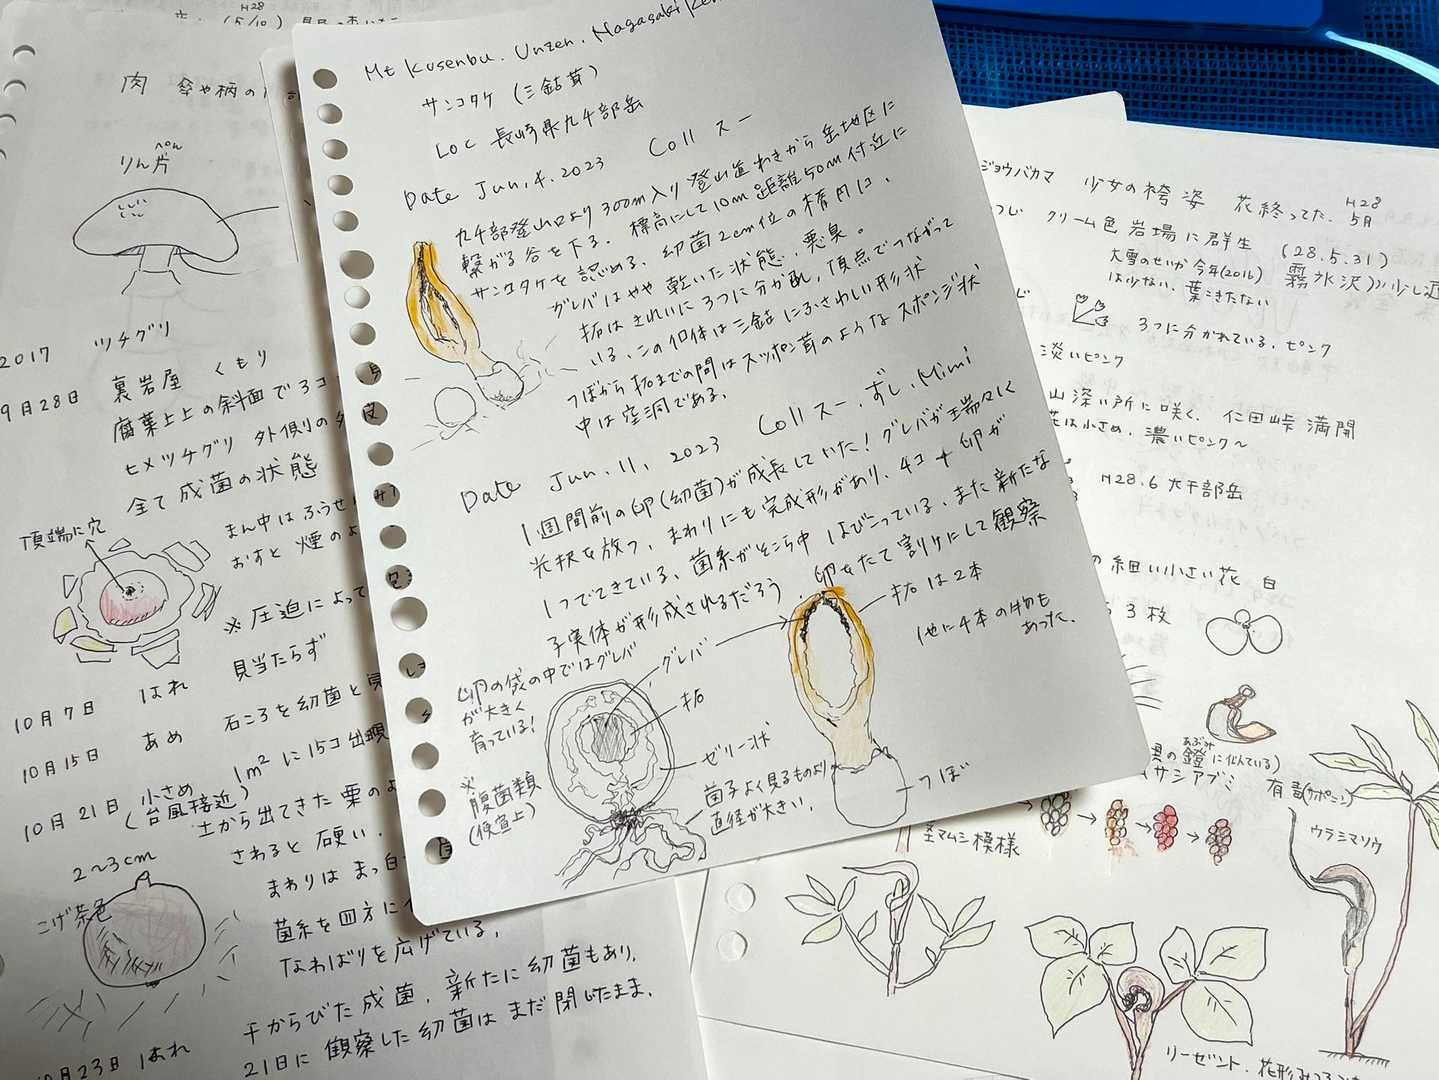 Mt Kusenbu. Unzen. Nagasaki
サンコタケ (三鈷茸)
Loc 長崎県九千部岳
Date Jun, 4. 2023 Coll スー
九千部登山口より300m入り登山道わきから岳地区に
繋がる谷を下る. 標高にして10m距離50m付近に
サンコタケを認める. 幼菌2cm位の楕円に.
グレバはやや乾いた状態、悪臭。
拓はきれいに3つに分かれ, 頂点でつながって
いる. この個体は三鈷にふさわしい形状
つぼから拓までの間はスッポン茸のようなスポンジ状
中は空洞である.
Date Jun. 11, 2023 Coll スー. ずし. Mimi
1週間前の卵(幼菌)が成長していた! グレバが瑞々しく
光択を放つ, まわりにも完成形があり. 4コ + 卵が
1つできている、菌糸がそこら中はびこっている、また新たな
子実体が形成されるだろう. 卵をたて割りにして観察
卵の袋の中ではグレバ
が大きく
育っている!
グレバ
拓
ゼリー状
拓は2本
他に4本の物も
あった.
※
腹菌類
(便宜上)
菌子よく見るものより
直径が大きい.
つぼ
H28
(5/10)
肉 傘や柄の
りん片
ぺん
2017 ツチグリ
9月28日 裏岩屋 くもり
腐葉土上の斜面で3コ
ヒメツチグリ 外側の外皮
全て成菌の状態
頂端に穴
まん中はふうせ
おすと 煙のよ
※圧迫によって
見当たらず
10月7日 はれ 石ころを幼菌と
10月15日 あめ 1m²に15コ出現
10月21日 小さめ
(台風接近)
土から出てきた栗のよ
さわると硬い.
2~3cm
まわりはまっ白
こげ茶色
菌糸を四方に
なわばりを広げている.
干からびた成菌. 新たに幼菌もあり.
21日に観察した幼菌はまだ閉じたまま.
月23日 はれ
ジョウバカマ 少女の袴姿 花終ってた. H28 5月
つじ クリーム色 岩場に群生 (28.5.31)
大雪のせいか今年(2016) 霧氷沢
は少ない. 葉こきたない
3つに分かれている. ピンク
淡いピンク
山深い所に咲く. 仁田峠 満開
花は小さめ. 濃いピンク~
H28.6 大干部岳
の細い小さい花 白
3枚
具の鐙に似ている)
あぶみ
ムサシアブミ
有毒(サポニン)
茎マムシ模様
ウラシマソウ
リーゼント. 花形